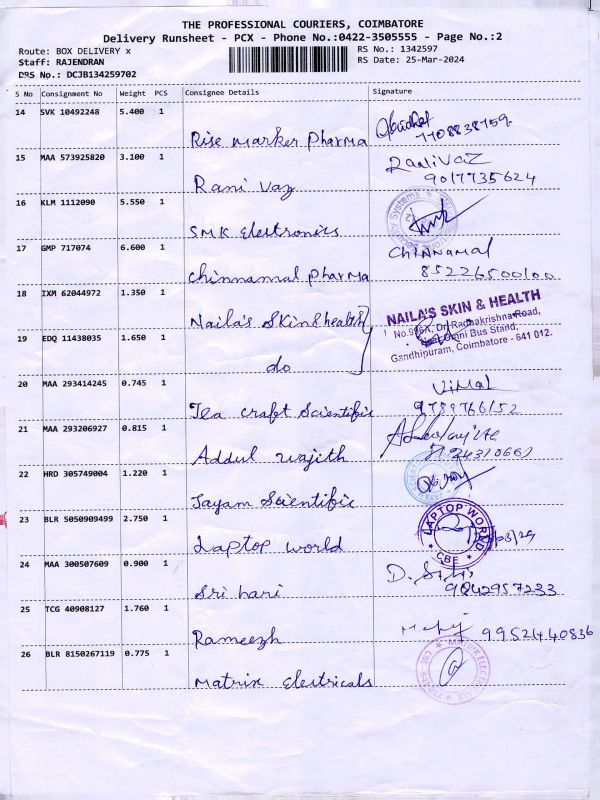 THE PROFESSIONAL COURIERS, COIMBATORE
Delivery Runsheet - PCX - Phone No.:0422-3505555 - Page No.:2
Route: BOX DELIVERY x
RS No.: 1342597
Staff: RAJENDRAN
RS Date: 25-Mar-2024
DRS No.: DCJB134259702
S No Consignment No Weight PCS Consignee Details Signature
14 SVK 10492248 5.400 1
Rise marker Pharma 7708838759
15 MAA 573925820 3.100 1
Rani vaz RaaliVaZ
9017735624
16 KLM 1112090 5.550 1
SMK Electronics
17 GMP 717074 6.600 1
Chinnamal Pharma Chinnamal
85226500100
18 IXM 62044972 1.350 1
Naila's Skin & health
NAILA'S SKIN & HEALTH
No. Dr. Radhakrishnan Road,
Omni Bus Stand,
Gandhipuram, Coimbatore - 641 012.
19 EDQ 11438035 1.650 1
do
20 MAA 293414245 0.745 1
Tea craft Scientific Vimal
9788766152
21 MAA 293206927 0.815 1
Addul wajith
22 HRD 305749004 1.220 1
Jayam Scientific
23 BLR 5050909499 2.750 1
Laptop world
LAPTOP WORLD
CBE
24 MAA 300507609 0.900 1
Sri hari
9842957233
25 TCG 40908127 1.760 1
Rameezh
9952440836
26 BLR 8150267119 0.775 1
Matrix Electricals